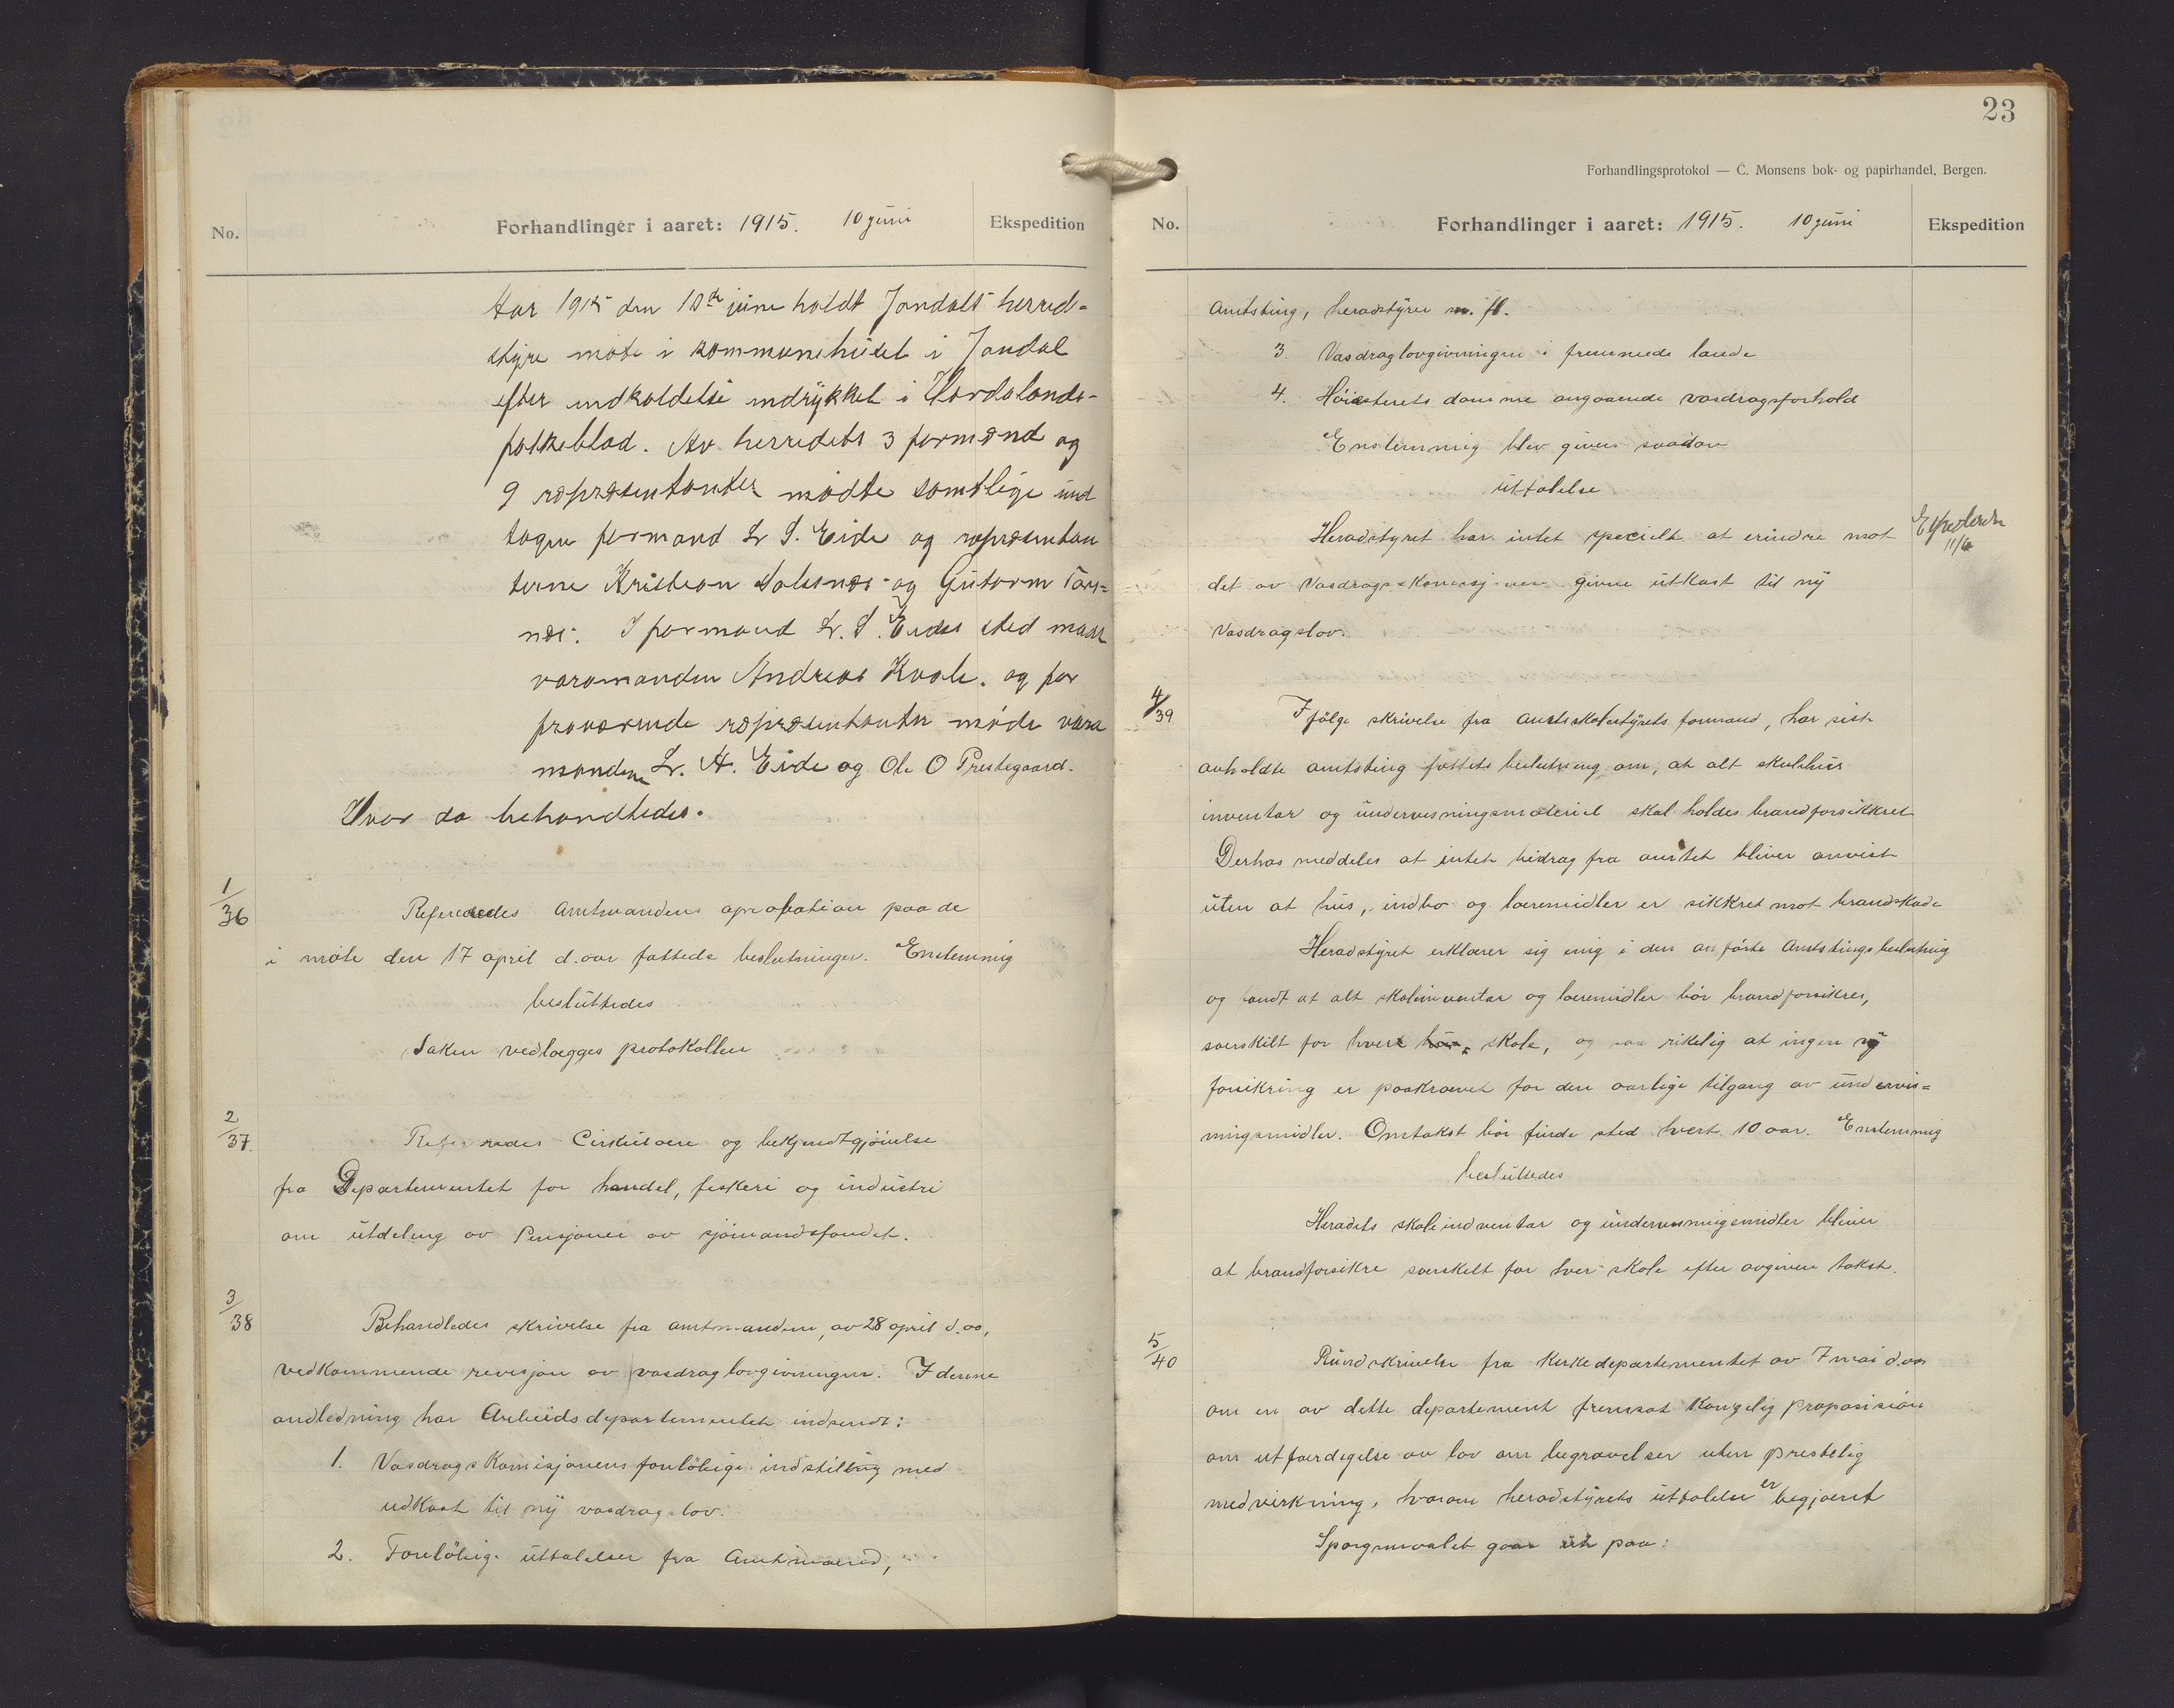 No.
Forhandlinger i aaret: 1915. 10 juni
Ekspedition
Aar 1915 den 10de juni holdt Jondals herred-
styre møte i kommunehuset i Jondal
efter indkaldelse indrykket i Hordalands-
folkeblad. Av herredets 3 formænd og
9 repræsentanter mødte samtlige und
tagen formand Lr S. Eide og repræsentan
terne Kristian Solesnæs og Gutorm Tors=
næs. I formand Lr. S. Eides sted møtte
varamanden Andreas Kvale. og for
fraværende repræsentanter mødte vara
mændene Lr. A. Eide og Ole O Prestegaard.
Hvor da behandledes.
1/36
Refereredes Amtmandens aprobation paa de
i møte den 17 april d. aar fattede beslutninger. Enstemmig
besluttedes
Saken vedlægges protokollen
2/37.
Refereredes Cirkulære og bekjendtgjörelse
fra Departementet for handel, fiskeri og industri
om utdeling av Pensjoner av sjömandsfondet.
3/38
Behandledes skrivelse fra amtmanden, av 28 april d. aa,
vedkommende revisjon av vasdraglovgivningen. I denne
andledning har Arbeidsdepartementet indsendt:
1. Vasdragskomisjonens forelöbige indstilling med
udkast til ny vasdragslov.
2. Forelöbige uttalelser fra Amtmænd,
23
Forhandlingsprotokol — C. Monsens bok- og papirhandel, Bergen.
No.
Forhandlinger i aaret: 1915. 10 juni
Ekspedition
Amtsting, heradstyrer m. fl.
3. Vasdraglovgivningen i fremmede lande
4. Höiesterets domme angaaende vasdragsforhold
Enstemmig blev given saadan
uttalelse
Heradstyret har intet specielt at erindre mot
Ekspederet
11/6
det av Vasdrags-Komisjonen givne utkast til ny
Vasdragslov.
4/39
Ifölge skrivelse fra amtsskolestyrets formand, har sist
avholdte amtsting fattets beslutning om, at alt skulehus
inventar og undervisningsmateriel skal holdes brandforsikkret
Derhos meddeles at intet bidrag fra amtet bliver anvist
uten at hus, indbo og læremidler er sikkret mot brandskade
Heradstyret erklærer sig enig i den anförte Amtstingsbeslutning
og fandt at alt skoleinventar og læremidler bör brandforsikres,
særskilt for hver skole, og saa rikelig at ingen ny
forsikring er paakrævet for den aarlige tilgang av undervis=
ningsmidler. Omtakst bör finde sted hvert 10 aar. Enstemmig
besluttedes
Heradets skoleindventar og undervisningsmidler bliver
at brandforsikre særskilt for hver skole efter avgiven takst.
5/40
Rundskrivelse fra Kirkedepartementet av 7 mai d. aar
om en av dette departement fremsat Kongelig proposision
om utfærdigelse av lov om begravelser uten prestelig
medvirkning, hvorom heradstyrets uttalelse er begjæret
Spörgsmaalet gaar ut paa: